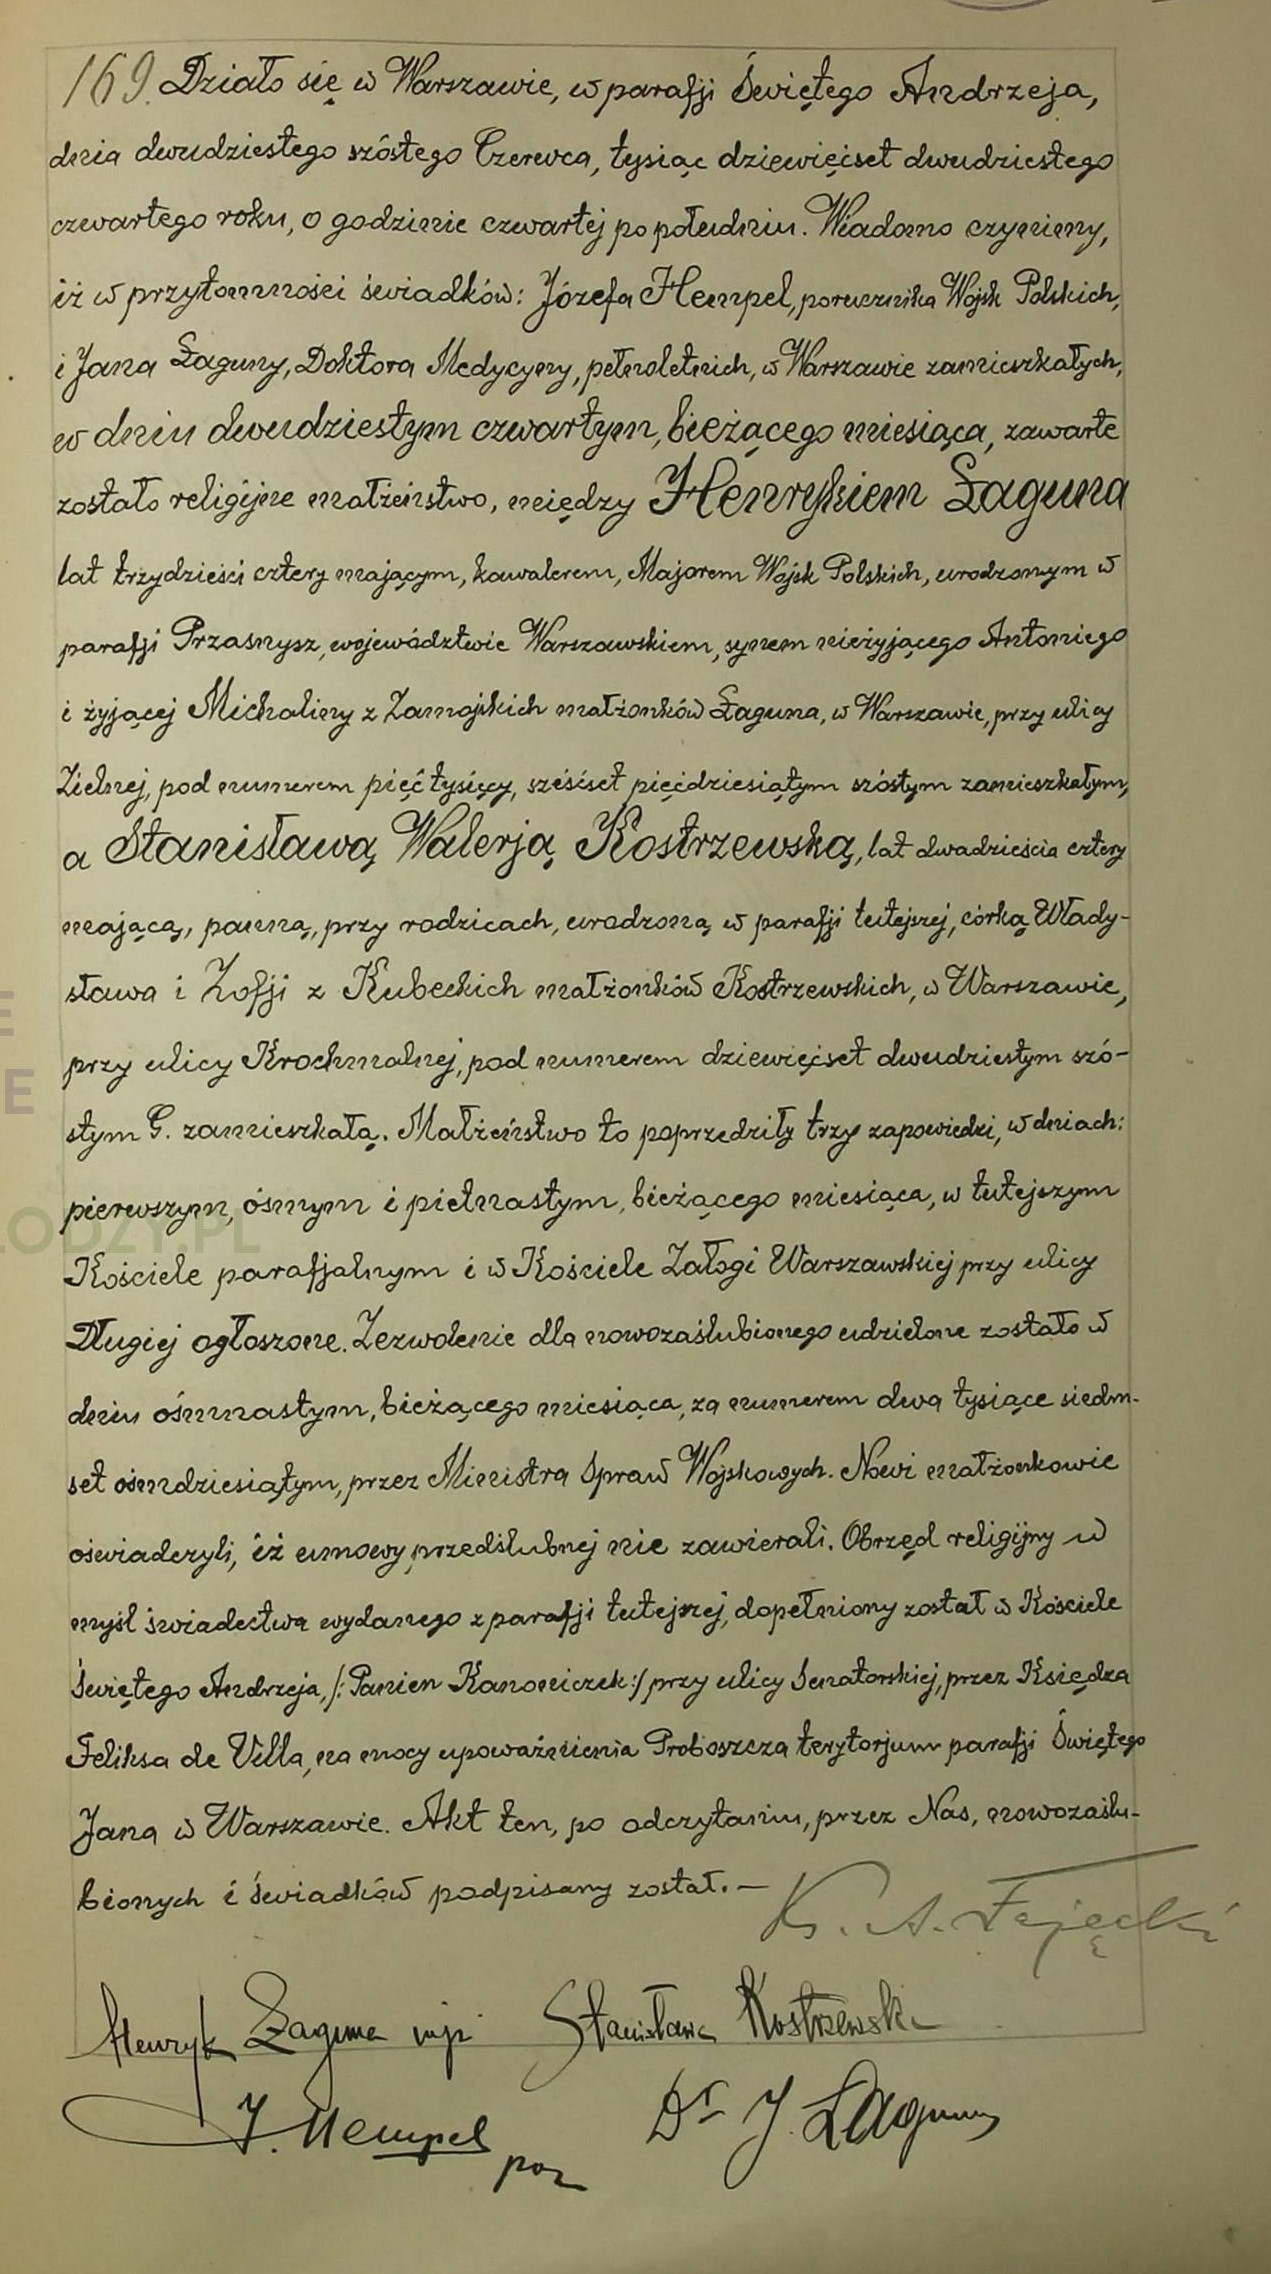 169. Działo się w Warszawie, w parafji Świętego Andrzeja,
dnia dwudziestego szóstego Czerwca, tysiąc dziewięćset dwudziestego
czwartego roku, o godzinie czwartej po południu. Wiadomo czynimy,
iż w przytomności świadków: Józefa Hempel, porucznika Wojsk Polskich,
i Jana Łaguny, Doktora Medycyny, pełnoletnich, w Warszawie zamieszkałych,
w dniu dwudziestym czwartym, bieżącego miesiąca, zawarte
zostało religijne małżeństwo, między Henrykiem Łaguna
lat trzydzieści cztery mającym, kawalerem, Majorem Wojsk Polskich, urodzonym w
parafji Przasnysz, województwie Warszawskiem, synem nieżyjącego Antoniego
i żyjącej Michaliny z Zamojskich małżonków Łaguna, w Warszawie, przy ulicy
Zielnej, pod numerem pięć tysięcy, sześćset pięćdziesiątym szóstym zamieszkałym,
a Stanisławą Walerją Kostrzewską, lat dwadzieścia cztery
mającą, panną, przy rodzicach, urodzoną w parafji tutejszej, córką Włady-
sława i Zofji z Kubeckich małżonków Kostrzewskich, w Warszawie,
przy ulicy Krochmalnej, pod numerem dziewięćset dwudziestym szó-
stym G. zamieszkałą. Małżeństwo to poprzedziły trzy zapowiedzi, w dniach:
pierwszym, ósmym i piętnastym, bieżącego miesiąca, w tutejszym
Kościele parafjalnym i w Kościele Załogi Warszawskiej przy ulicy
Długiej ogłoszone. Zezwolenie dla nowozaślubionego udzielone zostało w
dniu ósmnastym, bieżącego miesiąca, za numerem dwa tysiące siedm-
set ośmdziesiątym, przez Ministra Spraw Wojskowych. Nowi małżonkowie
oświadczyli, iż umowy przedślubnej nie zawierali. Obrzęd religijny w
myśl świadectwa wydanego z parafji tutejszej, dopełniony został w Kościele
Świętego Andrzeja, /: Panien Kanoniczek :/ przy ulicy Senatorskiej, przez Księdza
Feliksa de Ville, na mocy upoważnienia Proboszcza terytorjum parafji Świętego
Jana w Warszawie. Akt ten, po odczytaniu, przez Nas, nowozaślu-
bionych i świadków podpisany został. —
Ks. A. Fajęcki
Henryk Łaguna mjr Stanisława Kostrzewska
J. Hempel Dr J. Łaguna
por
E
E
LODZY.PL